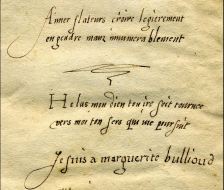 Aymer flateurs croire legierement
engendre maux innumerablement
Helas mon dieu ton ire soit tournee
vers moi ton serf qui me poursuit
Je suis a marguerite bullioud